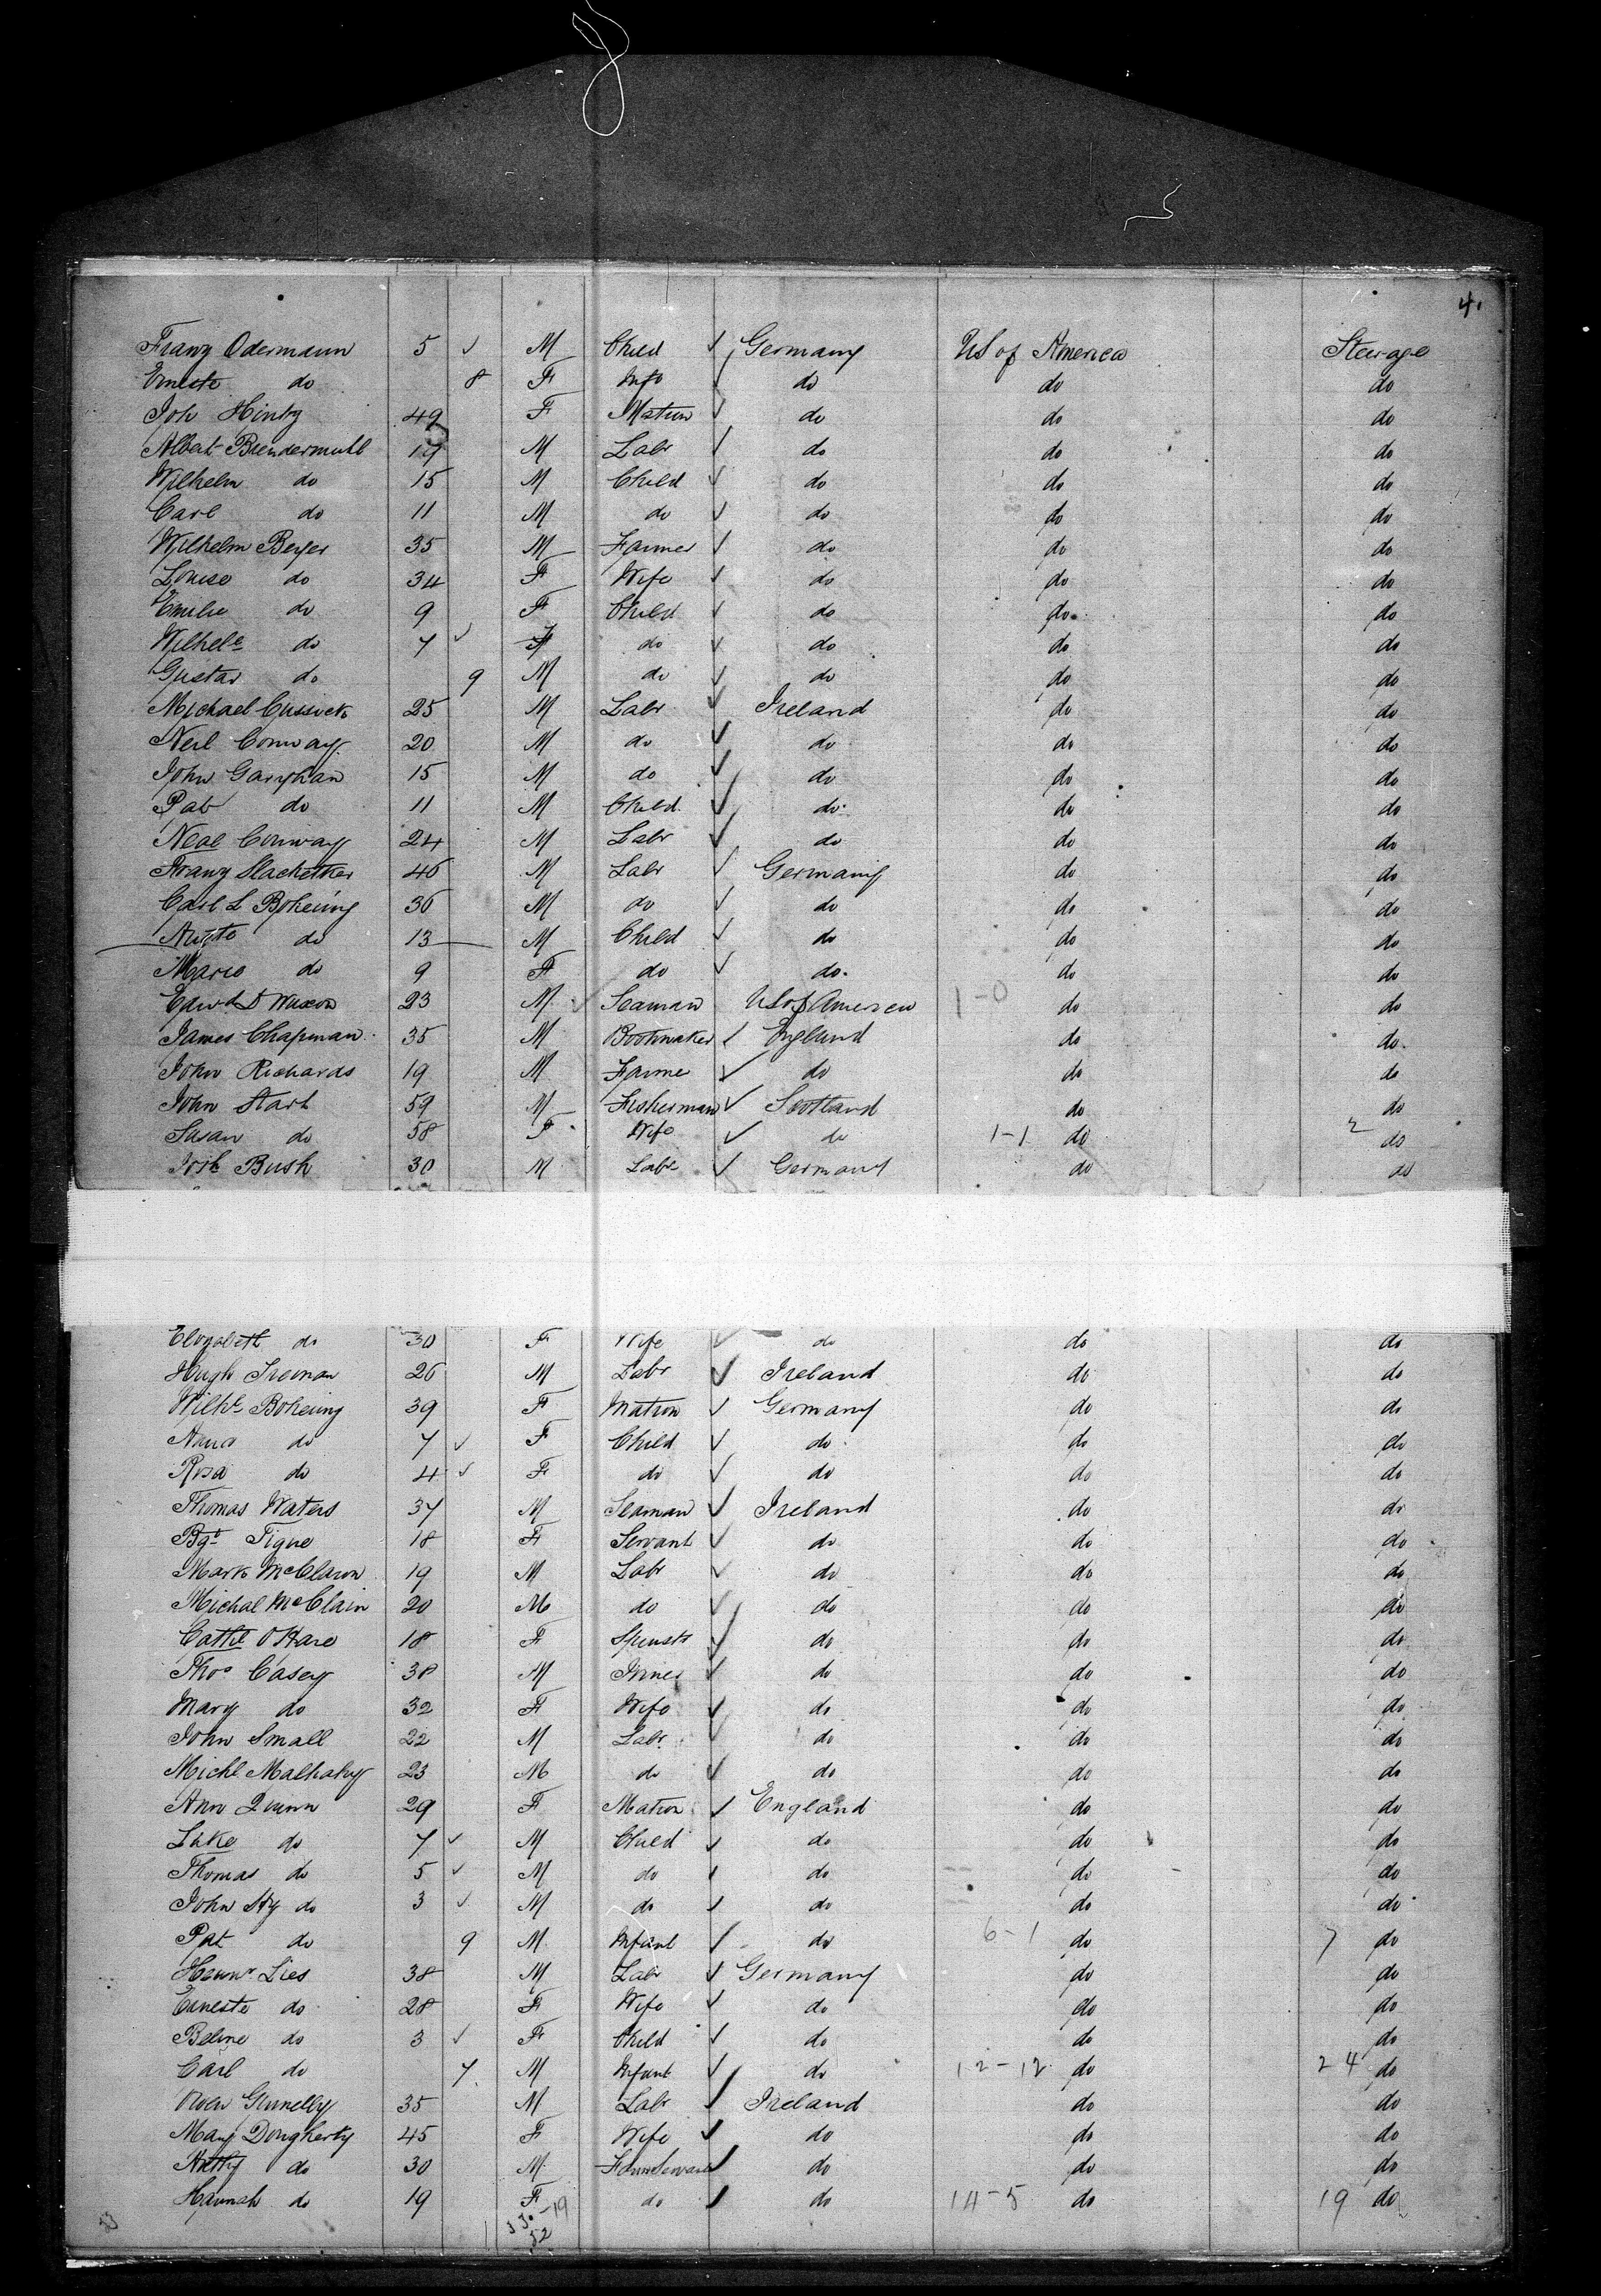 4.
Franz Odermann 5 ✓ M Child ✓ Germany US of America Steerage
Erneste do 8 F Inft ✓ do do do
Joh Hintz 49 F Matron ✓ do do do
Albert Brendermuhl 17 M Labr ✓ do do do
Wilhelm do 15 M Child ✓ do do do
Carl do 11 M do ✓ do do do
Wilhelm Beyer 35 M Farmer ✓ do do do
Louise do 34 F Wife ✓ do do do
Emilie do 9 F Child ✓ do do do
Wilhele do 7 ✓ F do ✓ do do do
Gustav do 9 M do ✓ do do do
Michael Cussick 25 M Labr ✓ Ireland do do
Neil Conway 20 M do ✓ do do do
John Garyhan 15 M do ✓ do do do
Pat do 11 M Child ✓ do do do
Neal Conway 24 M Labr ✓ do do do
Franz 46 M Labr ✓ Germany do do
Carl L Boheing 36 M do ✓ do do do
do 13 M Child ✓ do do do
Marie do 9 F do ✓ do do do
Edwd D 23 M ✓ Seaman US of America 1-0 do do
James Chapman 35 M Bootmaker ✓ England do do
John Richards 19 M Farme ✓ do do do
John Stark 59 M Fisherman ✓ Scotland do do
Susan do 58 F Wife ✓ do 1-1 do 2 do
Bush 30 M Labr ✓ Germany do do
Elizabeth do 30 F Wife ✓ do do do
Hugh 26 M Labr ✓ Ireland do do
Wilhe Boheing 39 F Matron ✓ Germany do do
do 7 ✓ F Child ✓ do do do
Rosa do 4 ✓ F do ✓ do do do
Thomas Waters 37 M Seaman ✓ Ireland do do
Bgt Tigue 18 F Servant ✓ do do do
Mark McClaron 19 M Labr ✓ do do do
Michal McClain 20 M do ✓ do do do
Cathe OHare 18 F Spinstr ✓ do do do
Thos Casey 38 M ✓ do do do
Mary do 32 F Wife ✓ do do do
John Small 22 M Labr ✓ do do do
Michl Malhahy 23 M do ✓ do do do
Ann Quinn 29 F Matron ✓ England do do
Luke do 7 ✓ M Child ✓ do do do
Thomas do 5 ✓ M do ✓ do do do
John Hy do 3 ✓ M do ✓ do do do
Pat do 9 M Infant ✓ do 6-1 do 7 do
Lies 38 M Labr ✓ Germany do do
Erneste do 28 F Wife ✓ do do do
Beline do 3 ✓ F Child ✓ do do do
Carl do 7 M Infant ✓ do 12-12 do 24 do
Owen Gunelly 35 M Labr ✓ Ireland do do
Mary Dougherty 45 F Wife ✓ do do do
do 30 M Farm Servant ✓ do do do
Hannah do 19 F do ✓ do 14-5 do 19 do
52